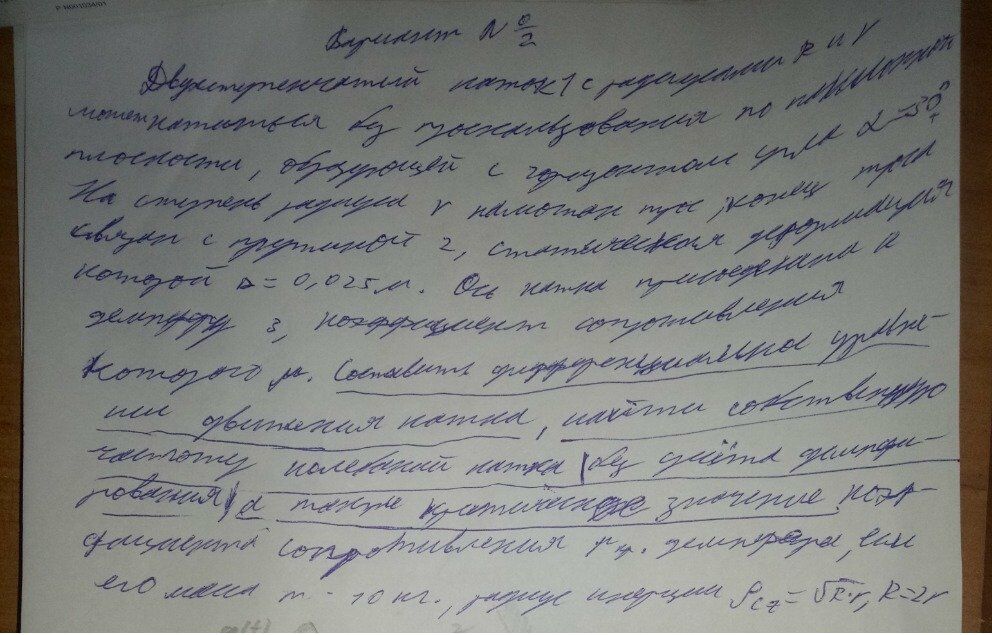 P N001034/01
Вариант № 0/2
Двухступенчатый каток 1 с радиусами R и r
может катиться без проскальзования по наклонной
плоскости, образующей с горизонтом угла α = 30°.
На ступень радиуса r намотан трос, конец троса
связан с пружиной 2, статическая деформация
которой Δ = 0,025 м. Ось катка присоединена к
демпферу 3, коэффициент сопротивления
которого μ. Составить дифференциальное уравне-
ние движения катка, найти собственную
частоту колебаний катка (без учёта демпфи-
рования), а также критическое значение коэф-
фициента сопротивления μкр. демпфера, если
его масса m = 10 кг., радиус инерции ρcz = √R·r, R=2r